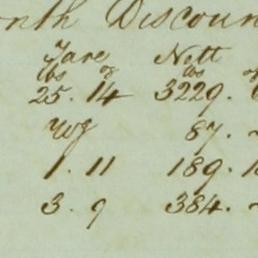 nth Discoun
Tare Nett
lbs oz lbs
25. 14 3229.
87.
1. 11 189.
3. 9 384.